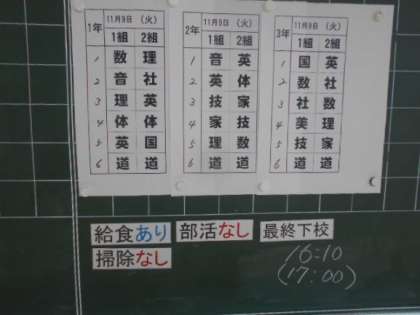 1年 11月9日 (火)
1組 2組
1 数 理
2 音 社
3 理 英
4 体 体
5 英 国
6 道 道
2年 11月9日 (火)
1組 2組
1 音 英
2 英 体
3 技 家
4 家 技
5 理 数
6 道 道
3年 11月9日 (火)
1組 2組
1 国 英
2 数 社
3 社 数
4 美 理
5 技 家
6 道 道
給食あり 部活なし 最終下校
掃除なし 16:10
(17:00)